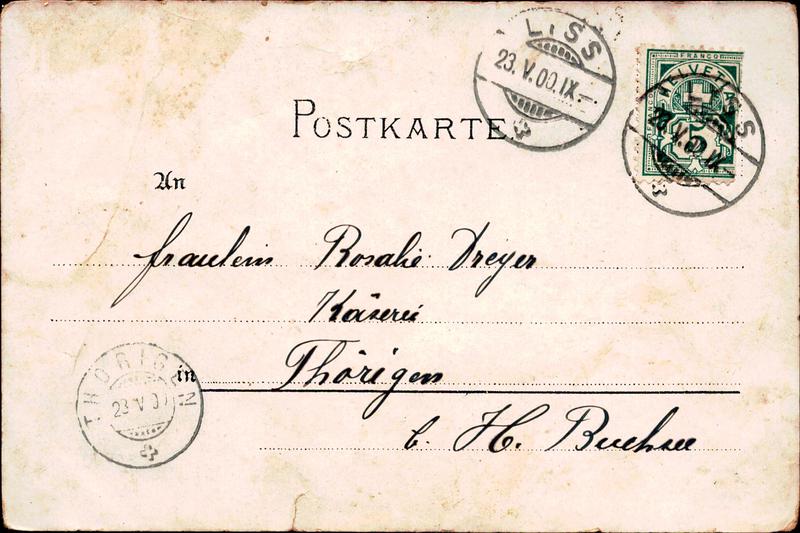 LYSS
23.V.00.IX.
FRANCO
HELVETIA
5
POSTKARTE.
An
Fraulein Rosalie Dreyer
Käserei
in Thörigen
b. H. Buchsee
THÖRIGEN
23 V 0